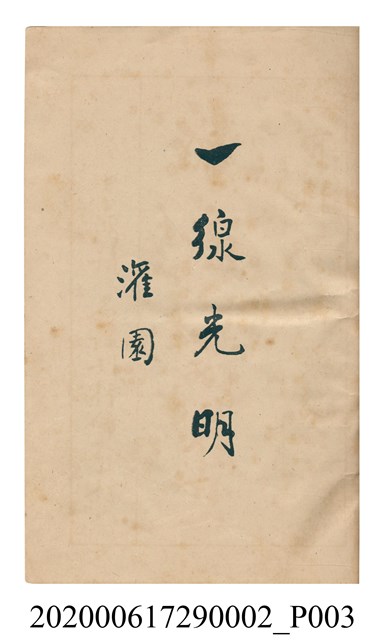 一線光明
灌園
202000617290002_P003